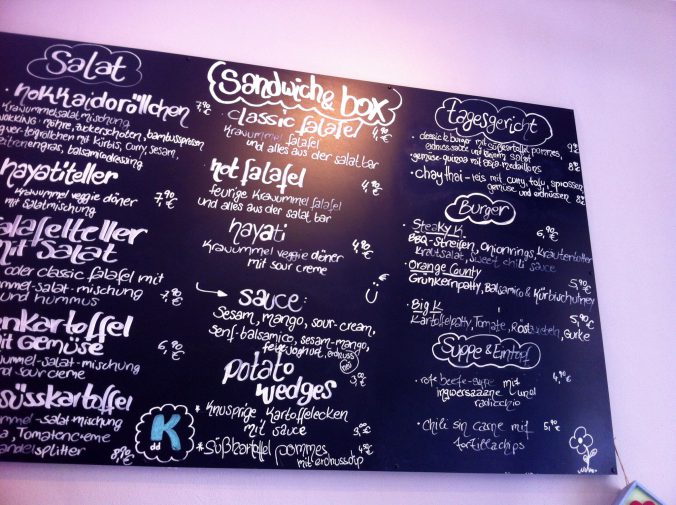 Salat
hokkaidoröllchen 7,90 €
Kravummelsalatmischung
möhre, zuckerschoten, bambussprossen
mit kürbis, curry, sesam,
zitronengras, balsamicodressing
hayatiteller 7,90 €
Kravummel veggie döner
mit Salatmischung
falafelteller
mit Salat
oder classic falafel mit
-salat-mischung
und hummus 7,90 €
kartoffel
mit Gemüse 6,90 €
-salat-mischung
und sour creme
süsskartoffel
-salat-mischung
, Tomatencreme
splitter 8,90 €
Sandwich & box
classic falafel 4,90 €
Kravummel falafel
und alles aus der salatbar
hot falafel 4,90 €
feurige Kravummel falafel
und alles aus der salatbar
hayati 4,90 €
Kravummel veggie döner
mit sour creme
sauce:
Sesam, mango, sour-cream,
Senf-balsamico, sesam-mango,
erdnuss
potato
wedges
* Knusprige Kartoffelecken
mit sauce
* Süßkartoffel pommes
mit erdnussdip
K
dd
tagesgericht
classic k burger mit süßkartoffel pommes,
und kleinem salat
gemüse-quinoa mit medaillons
· chay thai - reis mit curry, tofu, sprossen,
gemüse und erdnüssen 8€
Burger
· Steaky K. 6,90 €
BBQ-Streifen, Onionrings, Kräuterbutter
Krautsalat, sweet chili sauce
· Orange County 5,90 €
Grünkernpatty, Balsamico & Kürbischutney
· Big K 5,90 €
Kartoffelpatty, Tomate, Röstzwiebeln, Gurke
Suppe & Eintopf
· rote beete-suppe mit 4,90 €
ingwersahne und
radicchio
· chili sin carne mit 5,90 €
tortillachips